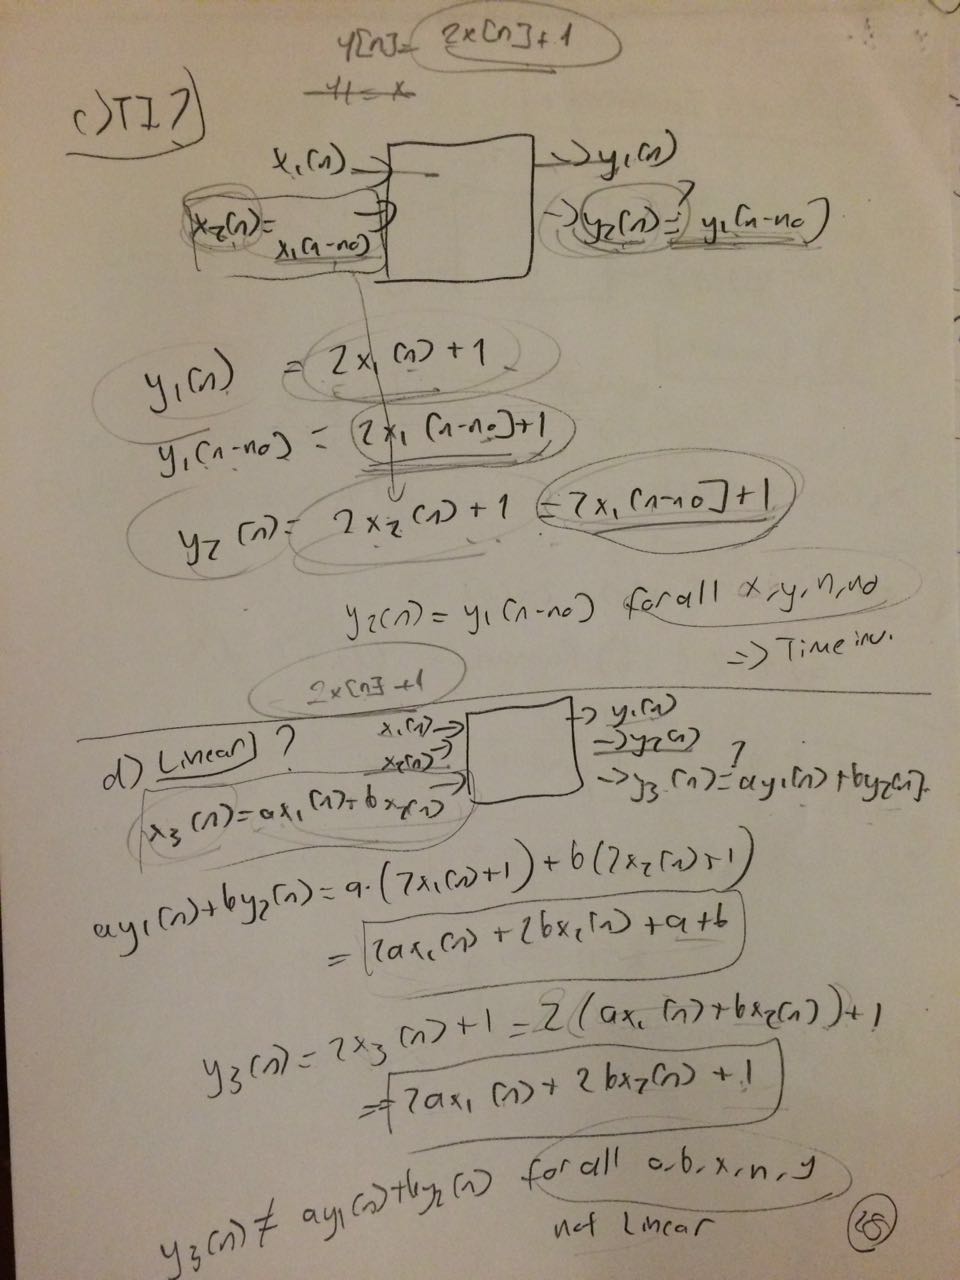 y[n]= 2x[n]+1
y1 = x
c) TI?
x₁[n] → → y₁[n]
x₂[n]= x₁[n-n₀] → → y₂[n] =? y₁[n-n₀]
y₁[n] = 2x₁[n]+1
y₁[n-n₀] = 2x₁[n-n₀]+1
y₂[n] = 2x₂[n]+1 = 2x₁[n-n₀]+1
y₂[n] = y₁[n-n₀] for all x, y, n, n₀
=> Time inv.
2x[n]+1
d) Linear?
x₁[n] → → y₁[n]
x₂[n] → → y₂[n]
x₃[n]=ax₁[n]+bx₂[n] → → y₃[n] =? ay₁[n]+by₂[n].
ay₁[n]+by₂[n] = a·(2x₁[n]+1)+b(2x₂[n]+1)
= 2ax₁[n]+2bx₂[n]+a+b
y₃[n] = 2x₃[n]+1 = 2(ax₁[n]+bx₂[n])+1
= 2ax₁[n]+2bx₂[n]+1
y₃[n] ≠ ay₁[n]+by₂[n] for all a, b, x, n, y
not Linear